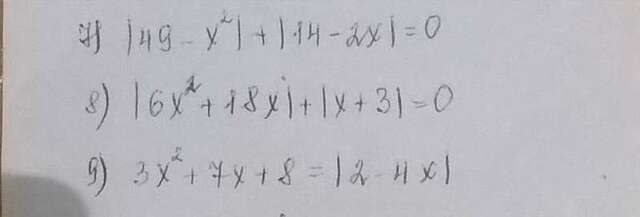 7) |49 - x²| + |14 - 2x| = 0
8) |6x² + 18x| + |x + 3| = 0
9) 3x² + 7x + 8 = |2 - 4x|